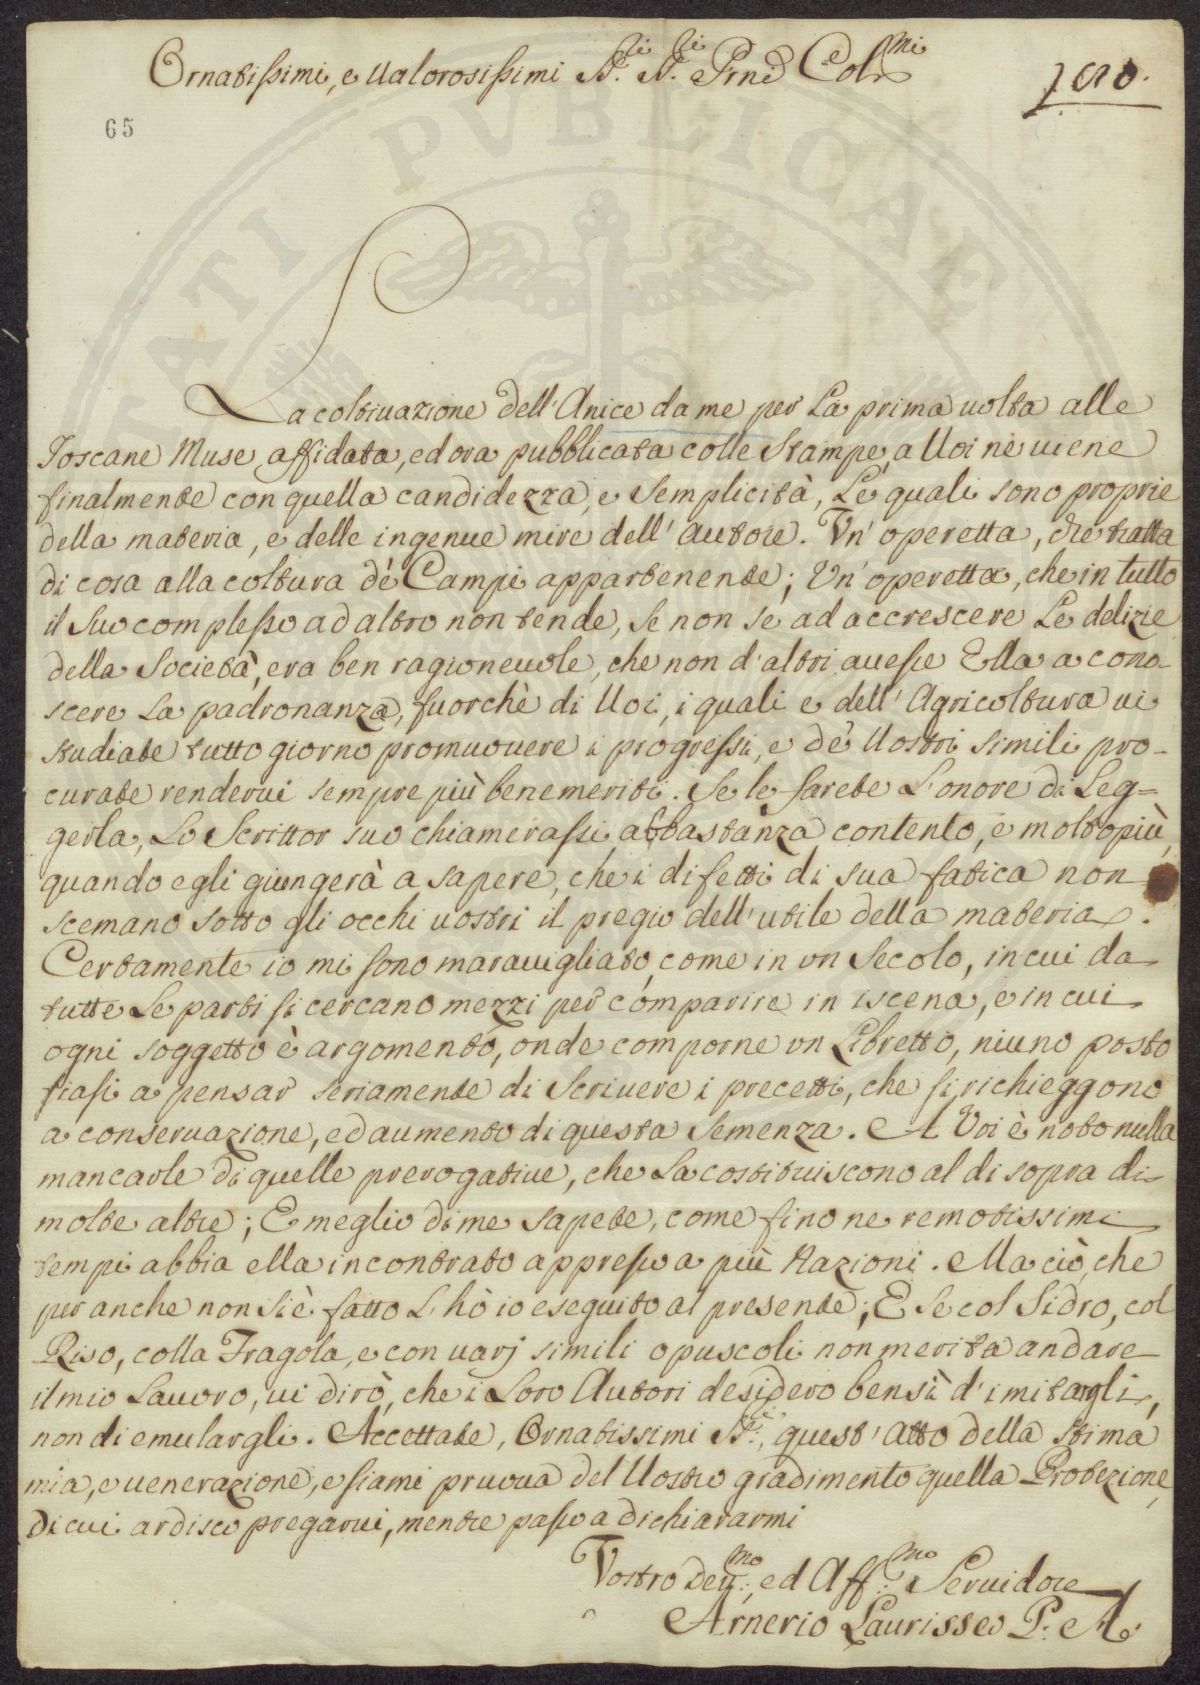 Ornatissimi, e Ualorosissimi Sri. Sri. Prni Colmi
65
La coltiuazione dell'Anice da me per La prima uolta alle
Toscane Muse affidata, ed ora pubblicata colle Stampe, a Uoi ne uiene
finalmente con quella candidezza, e Semplicità, Le quali sono proprie
della materia, e delle ingenue mire dell'Autore. Vn'operetta, che tratta
di cosa alla coltura de' Campi appartenente; Un'operetta, che in tutto
il Suo complesso ad altro non tende, Se non Se ad accrescere Le delizie
della Società, era ben ragioneuole, che non d'altri auesse Ella a cono-
scere La padronanza, fuorchè di Uoi, i quali e dell'Agricoltura ui
studiate tutto giorno promuouere i progressi, e de' Uostri simili pro-
curate renderui sempre più benemeriti. Se le farete L'onore di Leg=
gerla, Lo Scrittor suo chiamerassi abbastanza contento, e molto più,
quando egli giungerà a sapere, che i difetti di sua fatica non
scemano sotto gli occhi uostri il pregio dell'utile della materia.
Certamente io mi sono marauigliato, come in un Secolo, in cui da
tutte Le parti si cercano mezzi per comparire in iscena, e in cui
ogni soggetto è argomento, onde comporne un Libretto, niuno posto
siasi a pensar seriamente di Scriuere i precetti, che si richieggono
a conseruazione, ed aumento di questa Semenza. A Voi è noto nulla
mancarle di quelle prerogatiue, che La costituiscono al di sopra di
molte altre; E meglio di me sapete, come fino ne remotissimi
tempi abbia ella incontrato appresso a più Nazioni. Ma ciò, che
per anche non si è fatto L'hò io eseguito al presente; E Se col Sidro, col
Riso, colla Fragola, e con uarj simili opuscoli non merita andare
il mio Lauoro, ui dirò, che i Loro Autori desidero bensì d'imitargli,
non di emulargli. Accettate, Ornatissimi Sri., quest'Atto della stima
mia, e uenerazione, e siami pruoua del Uostro gradimento quella Protezione,
di cui ardisco pregarui, mentre passo a dichiararmi
Vostro Deumo. ed Affmo. Seruidore
Arnerio Laurisseo P. A.
PVBLICAE